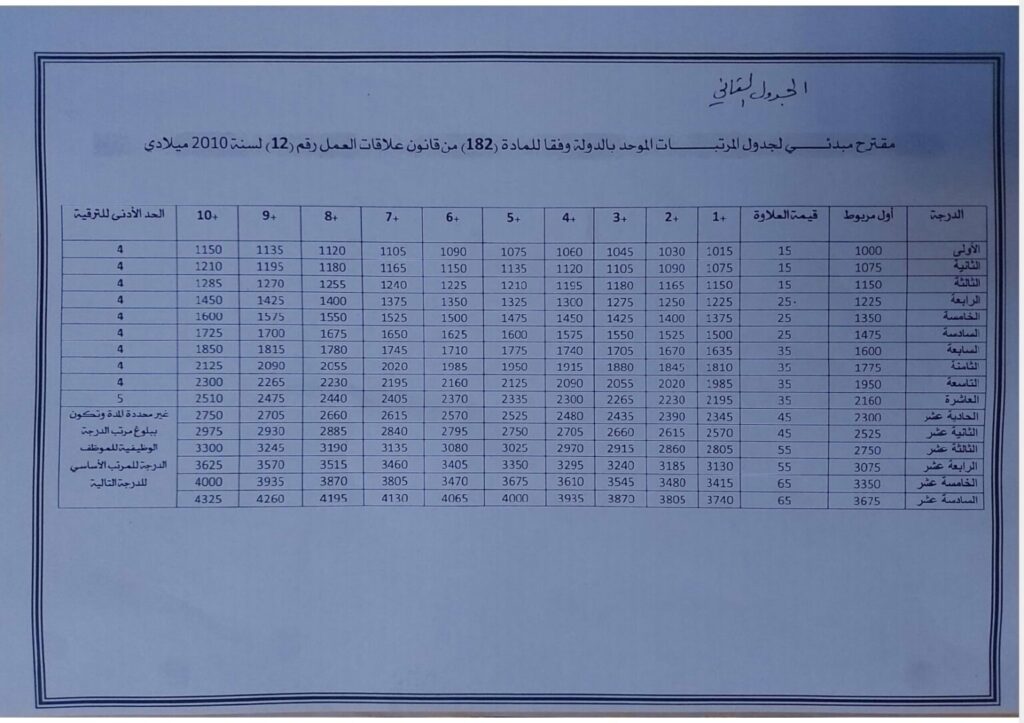 الجدول الثاني
مقترح مبدئي لجدول المرتبات الموحد بالدولة وفقا للمادة (182) من قانون علاقات العمل رقم (12) لسنة 2010 ميلادي
الدرجة أول مربوط قيمة العلاوة +1 +2 +3 +4 +5 +6 +7 +8 +9 +10 الحد الأدنى للترقية
الأولى 1000 15 1015 1030 1045 1060 1075 1090 1105 1120 1135 1150 4
الثانية 1075 15 1075 1090 1105 1120 1135 1150 1165 1180 1195 1210 4
الثالثة 1150 15 1150 1165 1180 1195 1210 1225 1240 1255 1270 1285 4
الرابعة 1225 25 1225 1250 1275 1300 1325 1350 1375 1400 1425 1450 4
الخامسة 1350 25 1375 1400 1425 1450 1475 1500 1525 1550 1575 1600 4
السادسة 1475 25 1500 1525 1550 1575 1600 1625 1650 1675 1700 1725 4
السابعة 1600 35 1635 1670 1705 1740 1775 1710 1745 1780 1815 1850 4
الثامنة 1775 35 1810 1845 1880 1915 1950 1985 2020 2055 2090 2125 4
التاسعة 1950 35 1985 2020 2055 2090 2125 2160 2195 2230 2265 2300 4
العاشرة 2160 35 2195 2230 2265 2300 2335 2370 2405 2440 2475 2510 5
الحادية عشر 2300 45 2345 2390 2435 2480 2525 2570 2615 2660 2705 2750 غير محددة المدة وتكون
الثانية عشر 2525 45 2570 2615 2660 2705 2750 2795 2840 2885 2930 2975 ببلوغ مرتب الدرجة
الثالثة عشر 2750 55 2805 2860 2915 2970 3025 3080 3135 3190 3245 3300 الوظيفية للموظف
الرابعة عشر 3075 55 3130 3185 3240 3295 3350 3405 3460 3515 3570 3625 الدرجة للمرتب الأساسي
الخامسة عشر 3350 65 3415 3480 3545 3610 3675 3470 3805 3870 3935 4000 للدرجة التالية
السادسة عشر 3675 65 3740 3805 3870 3935 4000 4065 4130 4195 4260 4325